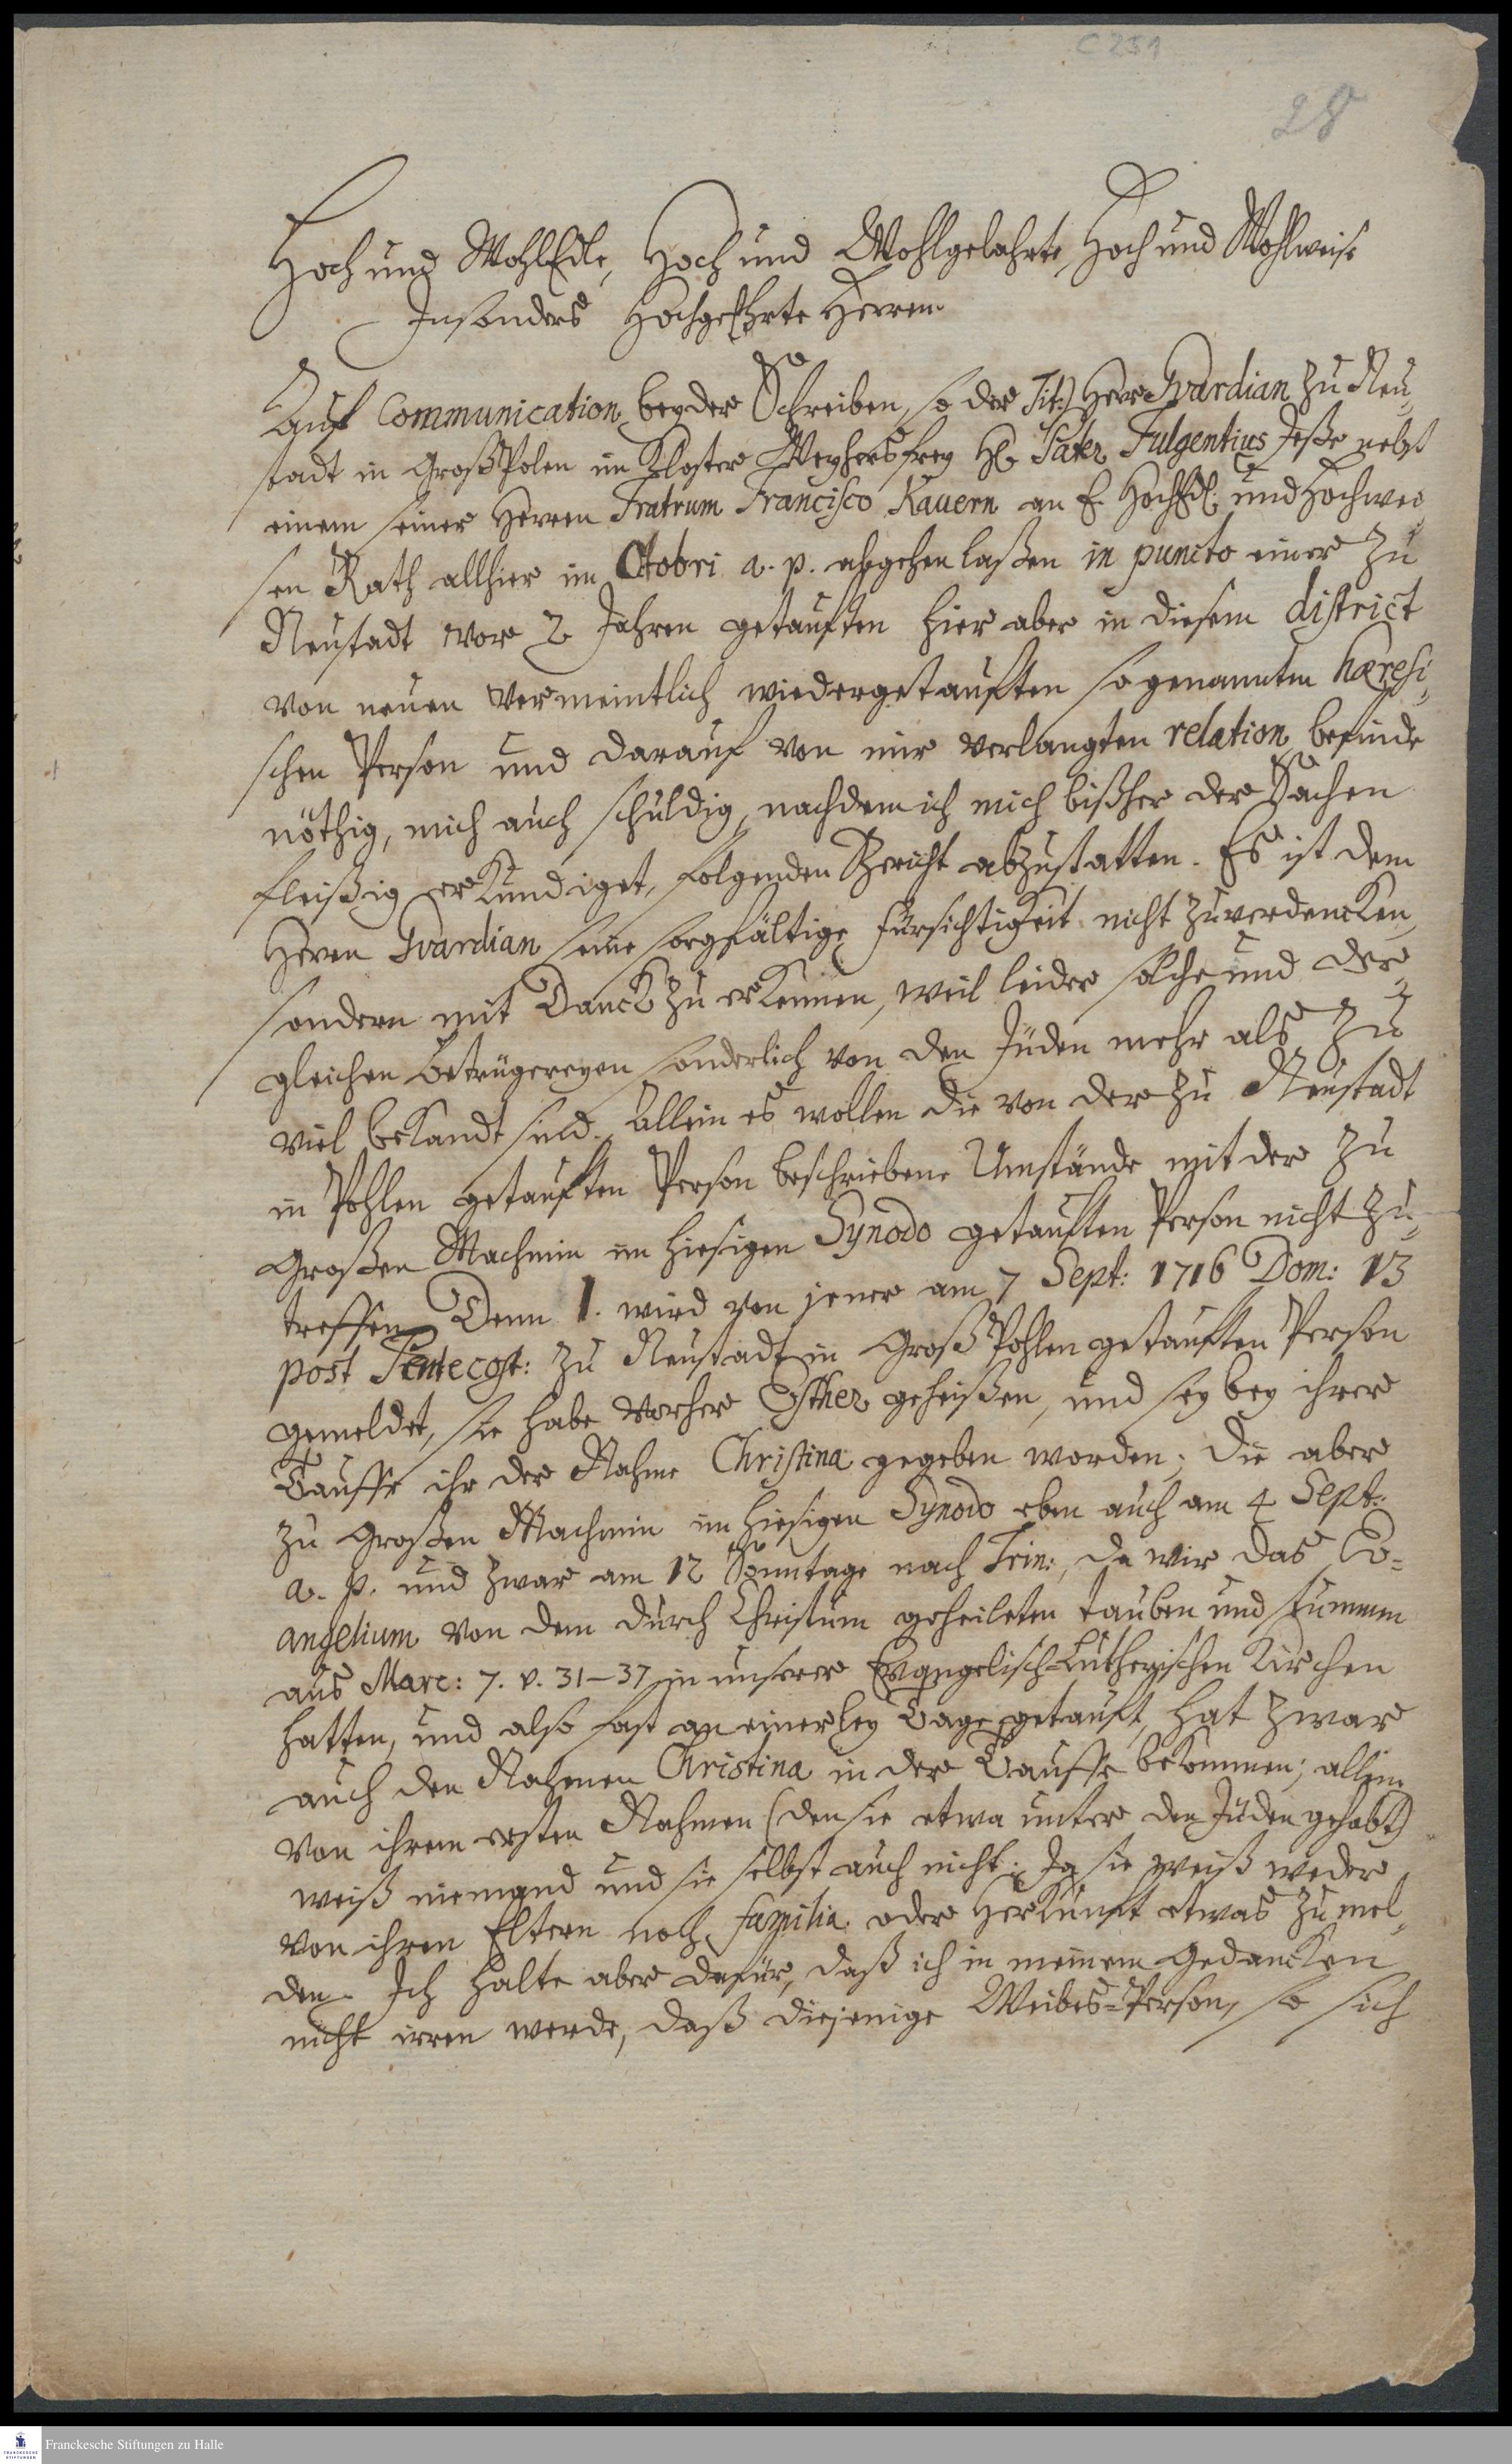 C 251
28
Hoch und WohlEdle, Hoch und Wohlgelahrte, Hoch und Wohlweise
Insonders Hochgeehrte Herren
Auf Communication beyder Schreiben, so der Tit:) Herr Gvardian zu Neu„
stadt in Groß Polen im Kloster Weyhersfrey H. Pater Fulgentius Jeße nebst
einem seiner Herren Fratrum Francisco Kauern an E. HochEdl. und Hochwei
sen Rath allhier im Octobri a. p. abgehen laßen in puncto einer zu
Neustadt vor 2 Jahren getaufften hier aber in diesem district
von neuen vermeintlich wiedergetaufften sogenannten hæresi„
schen Person und darauf von mir verlangten relation befinde
nöthig, mich auch schuldig, nachdem ich mich bißher der Sachen
fleißig erkundiget, folgenden Bericht abzustatten. Es ist dem
Herren Gvardian seine sorgfältige fürsichtigkeit nicht zuverdencken,
sondern mit Danck zu erkennen, weil leider solche und der„
gleichen Betrügereyen sonderlich von den Jüden mehr als zu
viel bekandt sind. Allein es wollen die von der zu Neustadt
in Pohlen getaufften Person beschriebene Umstände mit der zu
Großen Machmin im hiesigen Synodo getaufften Person nicht zu„
treffen. Denn 1. wird von jener am 7 Sept: 1716 Dom: 13
post Pentecost: zu Neustadt in Groß Pohlen getaufften Person
gemeldet, sie habe vorher Esther geheißen, und sey bey ihrer
Tauffe ihr der Nahme Christina gegeben worden; Die aber
zu Großen Machmin im hiesigen Synodo eben auch am 4 Sept:
a. p. und zwar am 12 Sonntage nach Trin:, da wir das Ev=
angelium von dem durch Christum geheileten tauben und stummen
aus Marc: 7. v. 31–37 in unserer Evangelisch=Lutherischen Kirchen
hatten, und also fast an einerley Tage getauft, hat zwar
auch den Nahmen Christina in der Tauffe bekommen; allein
von ihrem ersten Nahmen (den sie etwa unter den Jüden gehabt)
weiß niemand und sie selbst auch nicht; Ja sie weiß weder
von ihren Eltern noch familia oder Herkunft etwas zu mel„
den. Ich halte aber dafür, daß ich in meinem Gedancken
nicht irren werde, daß diejenige Weibes=Person, so sich
Franckesche Stiftungen zu Halle